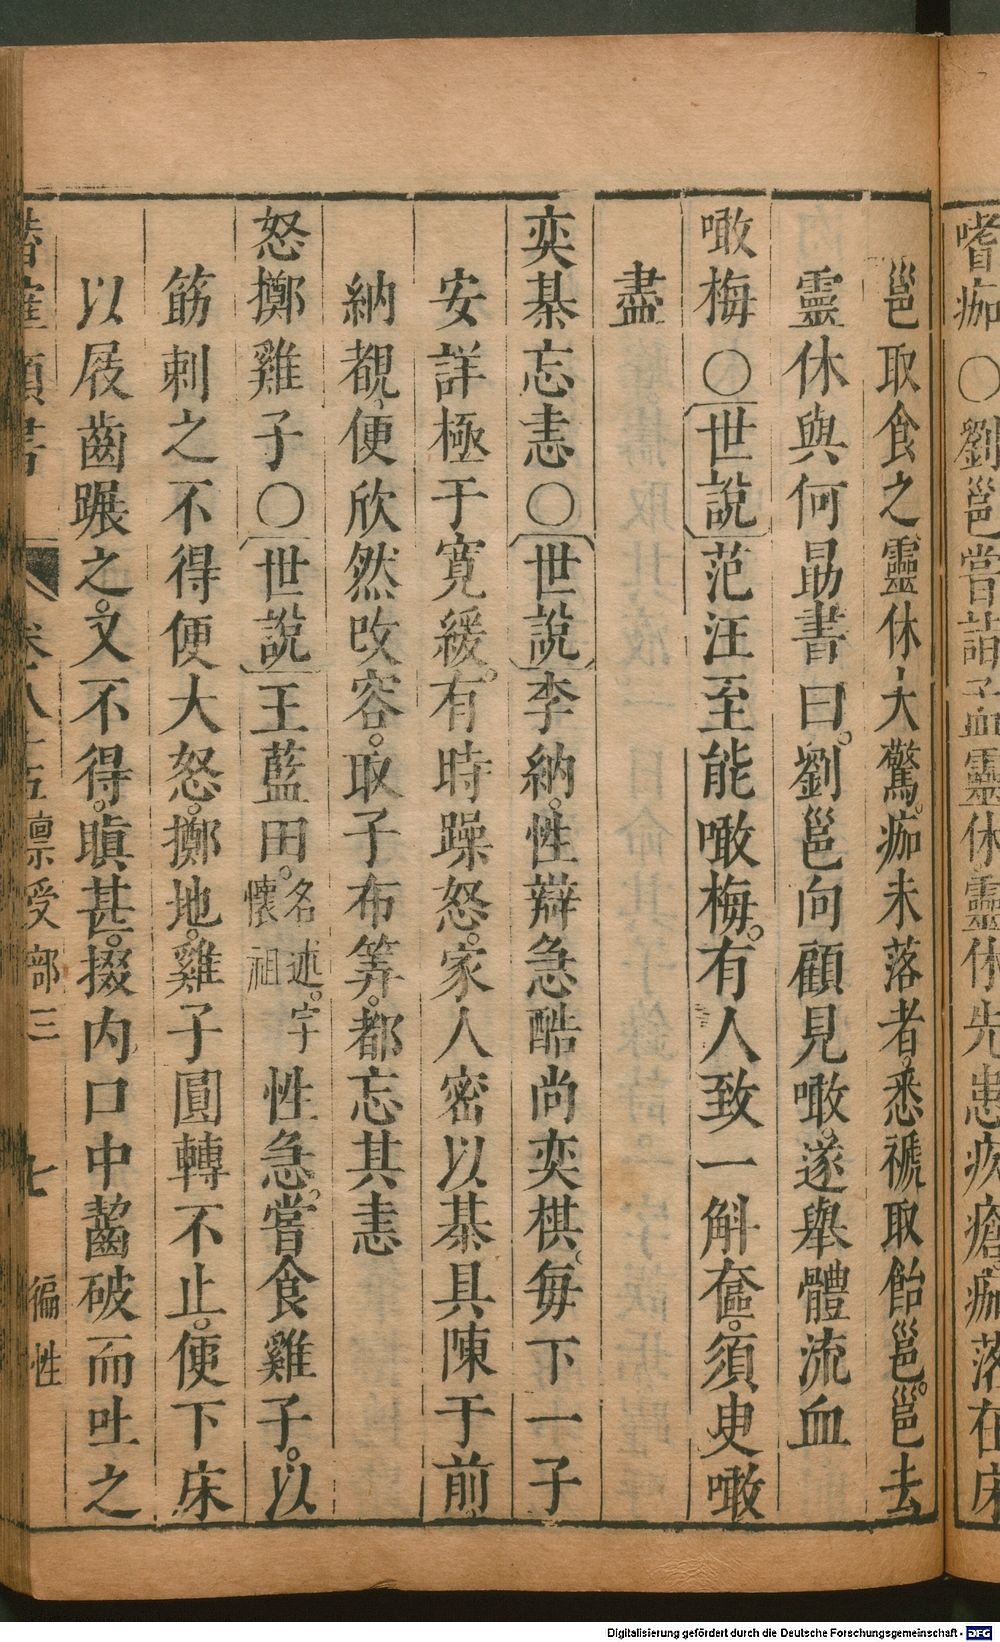 嗜痂〇劉邕嘗詣孟靈休靈休先患灸瘡痂落在床
邕取食之靈休大驚痂未落者悉褫取飴邕邕去
靈休與何勗書曰劉邕向顧見噉遂舉體流血
噉梅〇世說范汪至能噉梅有人致一斛奩須臾噉
盡
奕棊忘恚〇世說李納性辯急酷尚奕棋每下一子
安詳極于寬緩有時躁怒家人密以棊具陳于前
納覩便欣然改容取子布筭都忘其恚
怒擲雞子〇世說王藍田名述字懷祖性急嘗食雞子以
筯刺之不得便大怒擲地雞子圓轉不止便下床
以屐齒蹍之又不得瞋甚掇內口中齧破而吐之
類書 卷 稟受部三 七 褊性
Digitalisierung gefördert durch die Deutsche Forschungsgemeinschaft - DFG